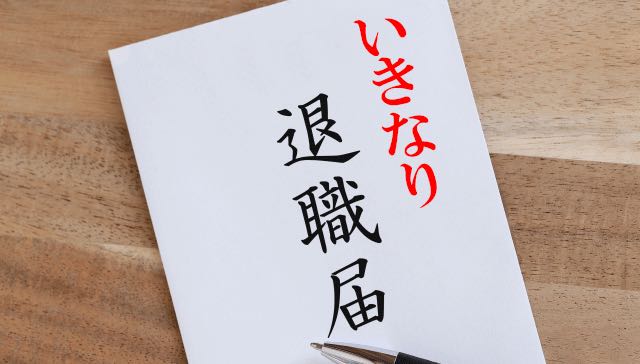 いきなり
退職届